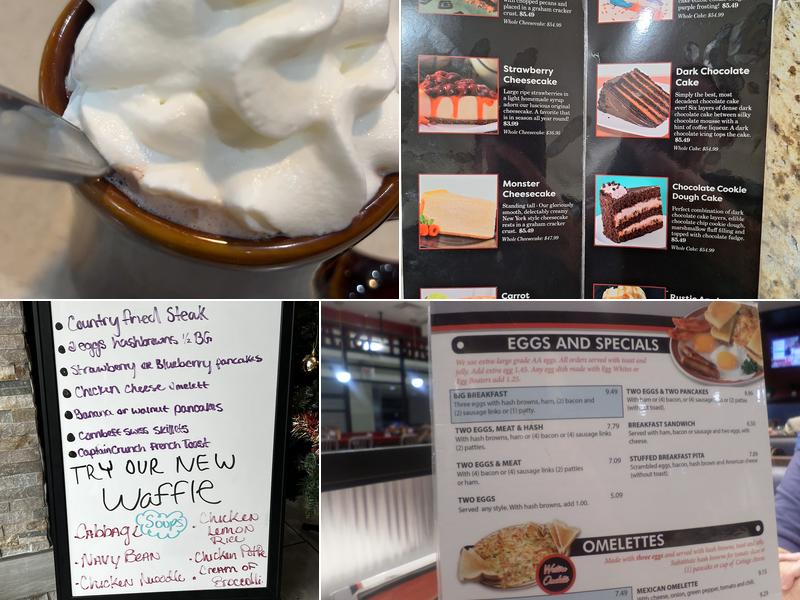 with chopped pecans and
placed in a graham cracker
crust. $5.49
Whole Cheesecake: $54.95
purple frosting! $5.49
Whole Cake: $54.99
Strawberry
Cheesecake
Large ripe strawberries in
a light homemade syrup
adorn our luscious original
cheesecake. A favorite that
is in season all year round!
$3.99
Whole Cheesecake: $36.95
Dark Chocolate
Cake
Simply the best, most
decadent chocolate cake
ever! Six layers of dense dark
chocolate cake between silky
chocolate mousse with a
hint of coffee liqueur. A dark
chocolate icing tops the cake.
$5.49
Whole Cake: $54.99
Monster
Cheesecake
Standing tall - Our gloriously
smooth, delectably creamy
New York style cheesecake
rests in a graham cracker
crust. $5.49
Whole Cheesecake: $47.99
Chocolate Cookie
Dough Cake
Perfect combination of dark
chocolate cake layers, edible
chocolate chip cookie dough,
marshmallow fluff filling and
topped with chocolate fudge.
$5.49
Whole Cake: $54.99
Carrot
Country fried Steak
2 eggs hashbrowns 1/2 BG
Strawberry or Blueberry pancakes
Chicken Cheese omelett
Banana or walnut pancakes
Cornbeef swiss skillets
Captain Crunch French Toast
TRY OUR NEW
Waffle
Soups
Cabbage
NAVY BEAN
Chicken Noodle
Chicken
Lemon
Rice
Chicken
Cream of
Broccolli
EGGS AND SPECIALS
We use extra large grade AA eggs. All orders served with toast and
jelly. Add extra egg 1.45. Any egg dish made with Egg Whites or
Egg Beaters add 1.25.
BIG BREAKFAST 9.49
Three eggs with hash browns, ham, (2) bacon and
(2) sausage links or (1) patty.
TWO EGGS, MEAT & HASH 7.79
With hash browns, ham or (4) bacon or (4) sausage links
(2) patties.
TWO EGGS & MEAT 7.09
With (4) bacon or (4) sausage links (2) patties
or ham.
TWO EGGS 5.09
Served any style. With hash browns, add 1.00.
TWO EGGS & TWO PANCAKES
With ham or (4) bacon, (4) sausage or (2) patty
(without toast).
BREAKFAST SANDWICH
Served with ham, bacon or sausage and two eggs, with
cheese.
STUFFED BREAKFAST PITA
Scrambled eggs, bacon, hash brown and American cheese
(without toast).
OMELETTES
Made with three eggs and served with hash browns, toast and jelly.
Substitute hash browns for tomato slices or
(1) pancakes or cup of Cottage cheese
7.49
MEXICAN OMELETTE 9.15
With cheese, onion, green pepper, tomato and chili.